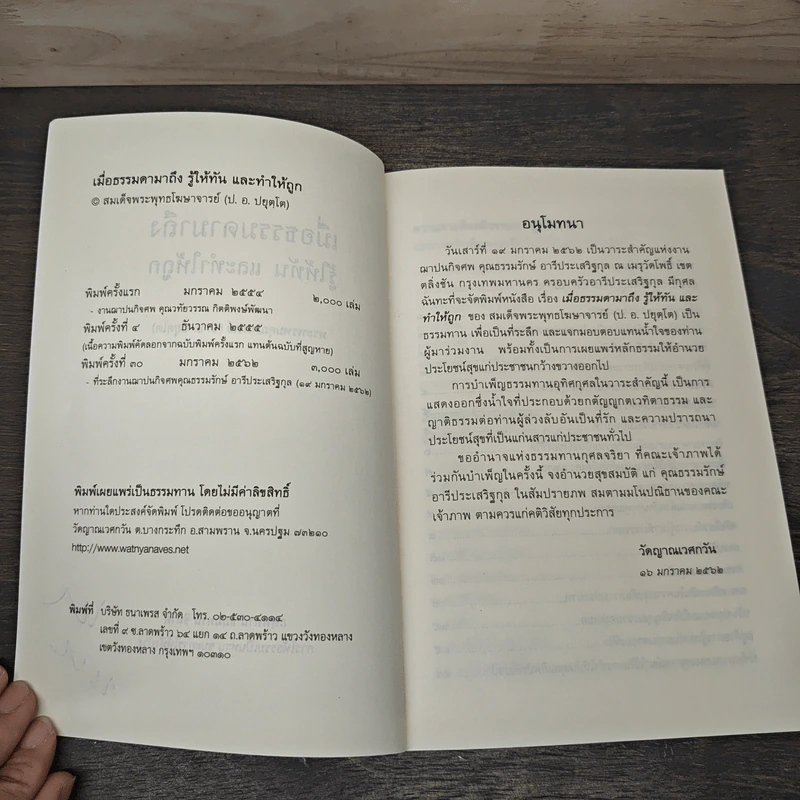 เมื่อธรรมดามาถึง รู้ให้ทัน และทำให้ถูก
© สมเด็จพระพุทธโฆษาจารย์ (ป. อ. ปยุตฺโต)
พิมพ์ครั้งแรก มกราคม ๒๕๕๔ ๒,๐๐๐ เล่ม
- งานฌาปนกิจศพ คุณวทัยวรรณ กิตติพงษ์พัฒนา
พิมพ์ครั้งที่ ๔ ธันวาคม ๒๕๕๕
(เนื้อความพิมพ์คัดลอกจากฉบับพิมพ์ครั้งแรก แทนต้นฉบับที่สูญหาย)
พิมพ์ครั้งที่ ๓๐ มกราคม ๒๕๖๒ ๓,๐๐๐ เล่ม
- ที่ระลึกงานฌาปนกิจศพคุณธรรมรักษ์ อารีประเสริฐกุล (๑๙ มกราคม ๒๕๖๒)
พิมพ์เผยแพร่เป็นธรรมทาน โดยไม่มีค่าลิขสิทธิ์
หากท่านใดประสงค์จัดพิมพ์ โปรดติดต่อขออนุญาตที่
วัดญาณเวศกวัน ต.บางกระทึก อ.สามพราน จ.นครปฐม ๗๓๒๑๐
http://www.watnyanaves.net
พิมพ์ที่ บริษัท ธนาเพรส จำกัด โทร. ๐๒-๕๓๐-๔๑๑๔
เลขที่ ๙ ซ.ลาดพร้าว ๖๔ แยก ๑๔ ถ.ลาดพร้าว แขวงวังทองหลาง
เขตวังทองหลาง กรุงเทพฯ ๑๐๓๑๐
อนุโมทนา
วันเสาร์ที่ ๑๙ มกราคม ๒๕๖๒ เป็นวาระสำคัญแห่งงาน
ฌาปนกิจศพ คุณธรรมรักษ์ อารีประเสริฐกุล ณ เมรุวัดโพธิ์ เขต
ตลิ่งชัน กรุงเทพมหานคร ครอบครัวอารีประเสริฐกุล มีกุศล
ฉันทะที่จะจัดพิมพ์หนังสือ เรื่อง เมื่อธรรมดามาถึง รู้ให้ทัน และ
ทำให้ถูก ของ สมเด็จพระพุทธโฆษาจารย์ (ป. อ. ปยุตฺโต) เป็น
ธรรมทาน เพื่อเป็นที่ระลึก และแจกมอบตอบแทนน้ำใจของท่าน
ผู้มาร่วมงาน พร้อมทั้งเป็นการเผยแพร่หลักธรรมให้อำนวย
ประโยชน์สุขแก่ประชาชนกว้างขวางออกไป
การบำเพ็ญธรรมทานอุทิศกุศลในวาระสำคัญนี้ เป็นการ
แสดงออกซึ่งน้ำใจที่ประกอบด้วยกตัญญูกตเวทิตาธรรม และ
ญาติธรรมต่อท่านผู้ล่วงลับอันเป็นที่รัก และความปรารถนา
ประโยชน์สุขที่เป็นแก่นสารแก่ประชาชนทั่วไป
ขออำนาจแห่งธรรมทานกุศลจริยา ที่คณะเจ้าภาพได้
ร่วมกันบำเพ็ญในครั้งนี้ จงอำนวยสุขสมบัติ แก่ คุณธรรมรักษ์
อารีประเสริฐกุล ในสัมปรายภพ สมตามมโนปณิธานของคณะ
เจ้าภาพ ตามควรแก่คติวิสัยทุกประการ
วัดญาณเวศกวัน
๑๖ มกราคม ๒๕๖๒